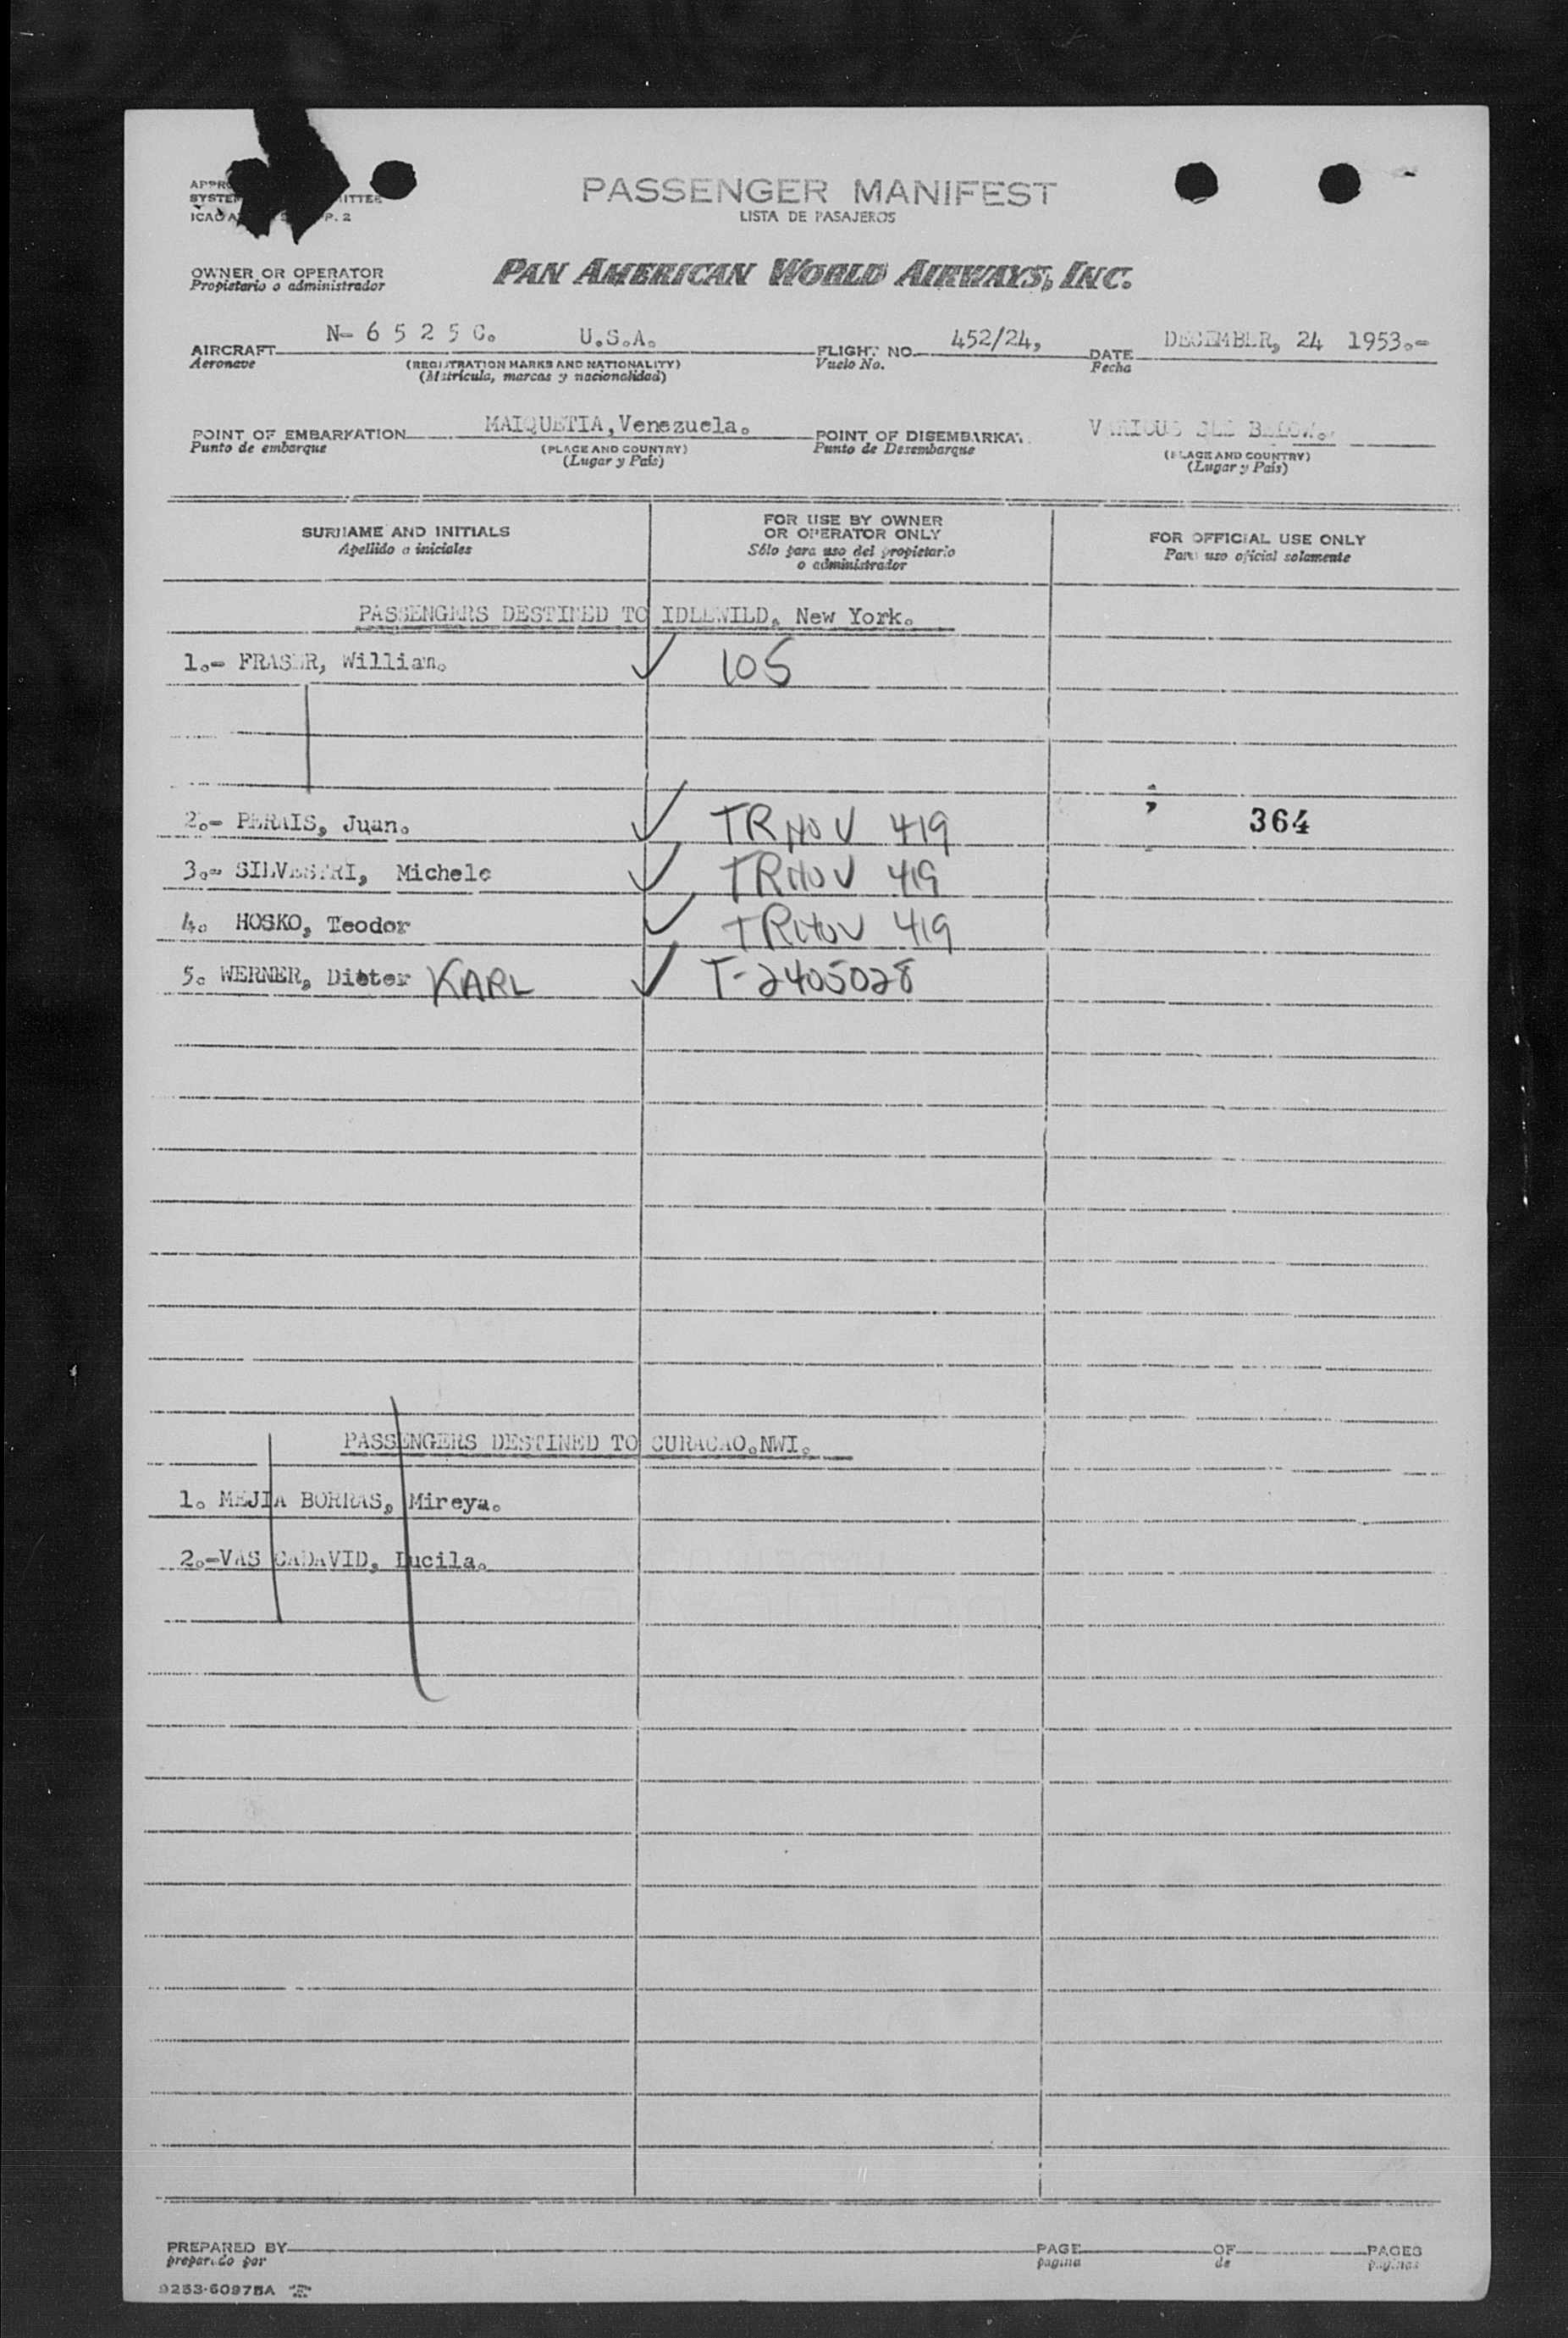 PASSENGER MANIFEST
LISTA DE PASAJEROS
P. 2
OWNER OR OPERATOR
Propietario o administrador
PAN AMERICAN WORLD AIRWAYS, INC.
AIRCRAFT N- 6 5 2 5 C. U.S.A. FLIGHT NO. 452/24, DATE DECEMBER, 24 1953.-
Aeronave (REGISTRATION MARKS AND NATIONALITY) Vuelo No. Fecha
(Matrícula, marcas y nacionalidad)
POINT OF EMBARKATION MAIQUETIA, Venezuela. POINT OF DISEMBARKAT. VARIOUS SEE BELOW.
Punto de embarque (PLACE AND COUNTRY) Punto de Desembarque (PLACE AND COUNTRY)
(Lugar y País) (Lugar y País)
SURNAME AND INITIALS
Apellido o iniciales
FOR USE BY OWNER
OR OPERATOR ONLY
Sólo para uso del propietario
o administrador
FOR OFFICIAL USE ONLY
Para uso oficial solamente
PASSENGERS DESTINED TO IDLEWILD. New York.
1.- FRASER, Willian. ✓ 105
2.- PERAIS, Juan. ✓ TR NOV 419 364
3.- SILVESTRI, Michele ✓ TR NOV 419
4. HOSKO, Teodor ✓ TR NOV 419
5. WERNER, Dieter KARL ✓ T-2405028
PASSENGERS DESTINED TO CURACAO.NWI.
1. MEJIA BORRAS, Mireya.
2.-VAS CADAVID, Lucila.
PREPARED BY PAGE OF PAGES
preparado por pagina de páginas
9253-60975A